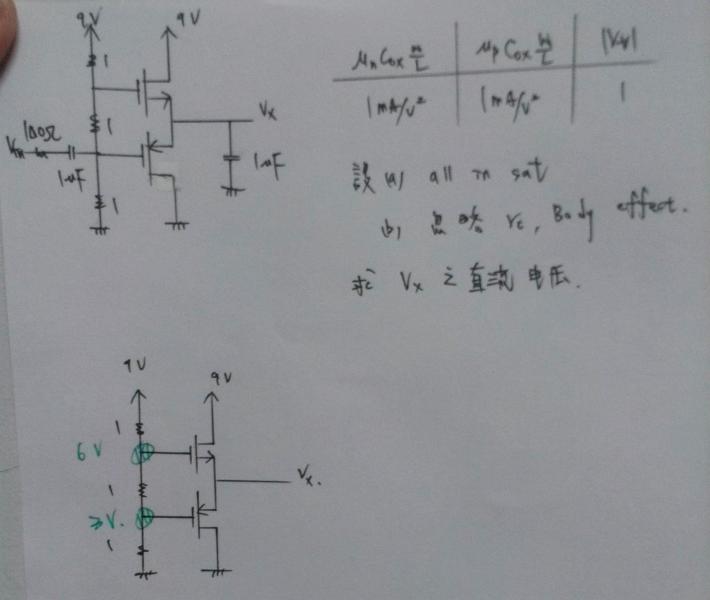 9V 9V
1
1
1
100Ω
1μF
Vx
1μF
μnCox W/L μpCox W/L |Vt|
1mA/V² 1mA/V² 1
設 (a) all in sat
(b) 忽略 ro, Body effect.
求 Vx 之直流电压.
9V 9V
1
6V
1
3V.
1
Vx.